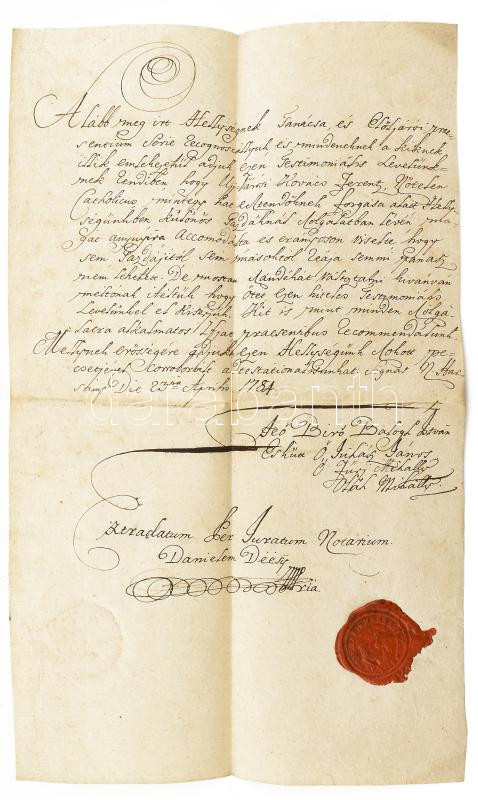 Alább meg irt Hellységnek Tanácsa, és Elöljárói prae-
sentium Serie recognoscallyuk és mindeneknek a kiknek
illik emlekezetül adjuk ezen Testimonialis Levelünk-
nek rendiben hogy Uj Járosi Kovács Ferentz, Nőtelen
Catholicus, mintegy hat Esztendőknek forgása alatt Helly-
ségünkben különös Gazdáknál szolgálatban lévén, ma-
gát annyipira Accomodálta és erányoson viselte hogy
sem Gazdájitól sem másoktól reája semmi panasz
nem lehetett. De mostan Mándékát változtatni kivánván
méltónak itéltük hogy őtet ezen hiteles Testimonialis
Levelünkel el kisirjük Kit is mint minden szolgá-
latra alkalmatos Ifjat praesentibus recommendálunk
Mellynek erősségére adjuk ezen Hellységünk szokott pe-
csétjével Corroborált Testationalisunkat Signat. N. Har-
sány Die 23na Aprilis 1784.
Feő Biró Balogh István
Eskütt Ö. Juhász János
Ö Fűsi Mihally
Oláh Mihally
Extradatum Per Juratum Notarium
Danielem Déésy
mpria
darabanth